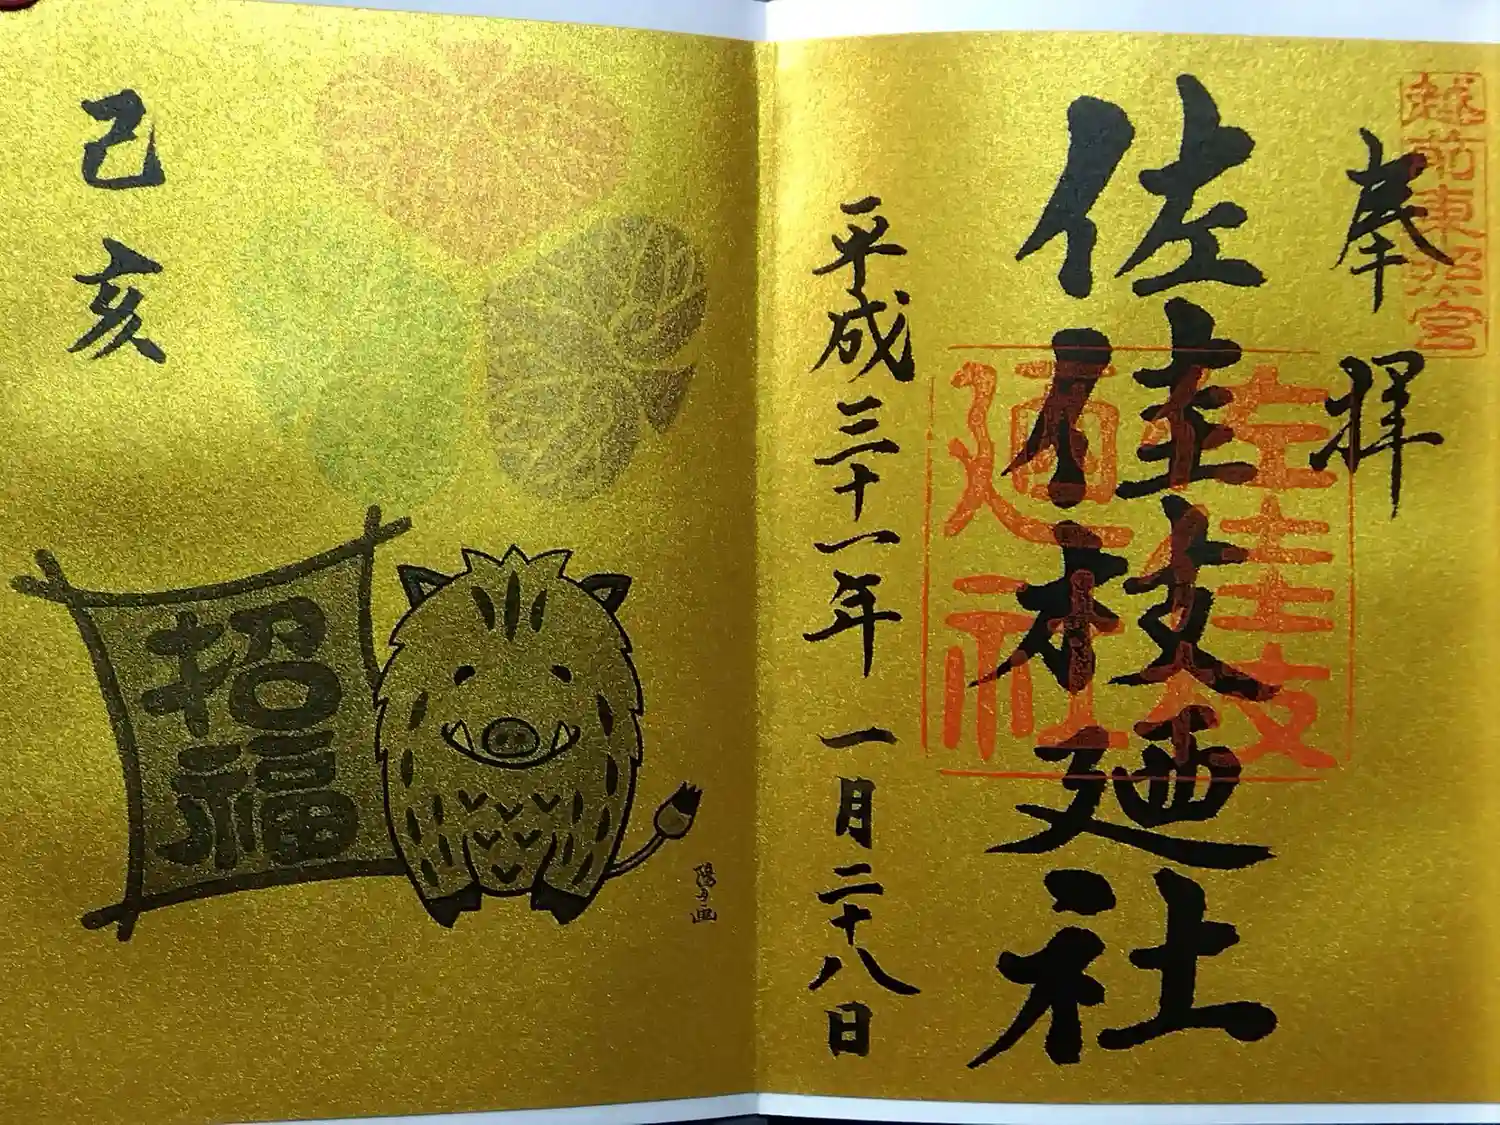 越前東照宮
奉拝
佐佳枝廼社
佐佳枝
廼社
平成三十一年一月二十八日
己亥
招福
陽子画